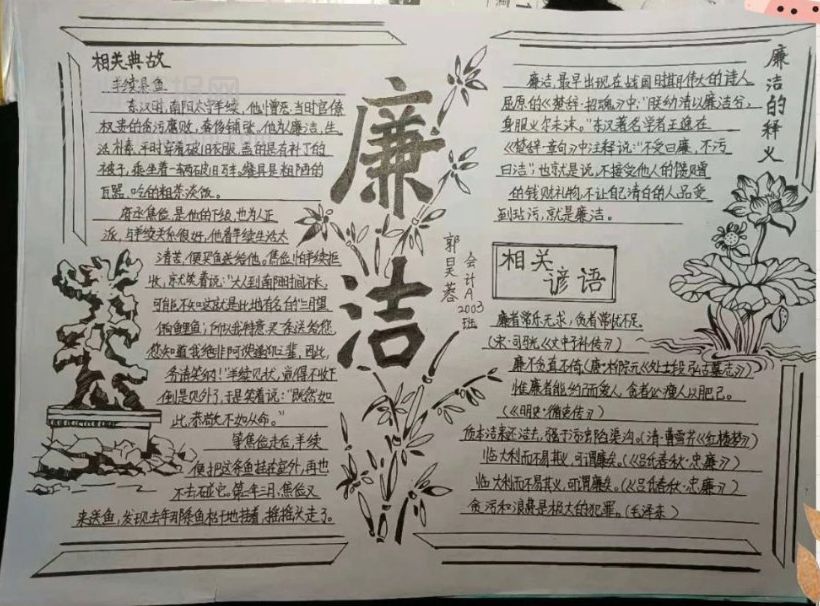 相关典故
羊续悬鱼
东汉时,南阳太守羊续,他憎恶当时官僚
权贵的贪污腐败,奢侈铺张。他为人廉洁,生
活朴素。平时穿着破旧衣服,盖的是有补丁的
被子,乘坐着一辆破旧马车。餐具是粗陋的
瓦器,吃的粗茶淡饭。
府丞焦俭,是他的下级,也为人正
派,与羊续关系很好,他看羊续生活太
清苦,便买鱼送给他。焦俭怕羊续拒
收,就笑着说:“大人到南阳时间不长,
可能不知这就是此地有名的“三月望
饷鲤鱼”;所以我特意买一条送给您
您知道我绝非阿
务请笑纳!”羊续见状,觉得不收下
倒是见外了,于是笑着说:“既然如
此,恭敬不如从命。”
等焦俭走后,羊续
便把这条鱼挂在室外,再也
不去碰它。第二年三月,焦俭又
来送鱼,发现去年那条鱼枯干地挂着,摇摇头走了。
廉
洁
郭昊蓉
会计A
2003
班
廉洁的释义
廉洁,最早出现在战国时期伟大的诗人
屈原的《楚辞·招魂》中:“朕幼清以廉洁兮,
身服义尔未沫。”东汉著名学者王逸在
《楚辞·章句》中注释说:“不受曰廉,不污
曰洁”,也就是说,不接受他人的馈赠
的钱财礼物,不让自己清白的人品受
到玷污,就是廉洁。
相关
谚语
廉者常乐无求,贪者常忧不足。
(宋·司马光《文中子补传》)
廉不贪直不倚
惟廉者能约己而爱人,贪者必瘠人以肥己。
(《明史·循吏传》)
质本洁来还洁去,强于污淖陷渠沟。(清·曹雪芹《红楼梦》)
临大利而不易其义,可谓廉矣。(《吕氏春秋·忠廉》)
临大利而不易其义,可谓廉矣。(《吕氏春秋·忠廉》)
贪污和浪费是极大的犯罪。(毛泽东)